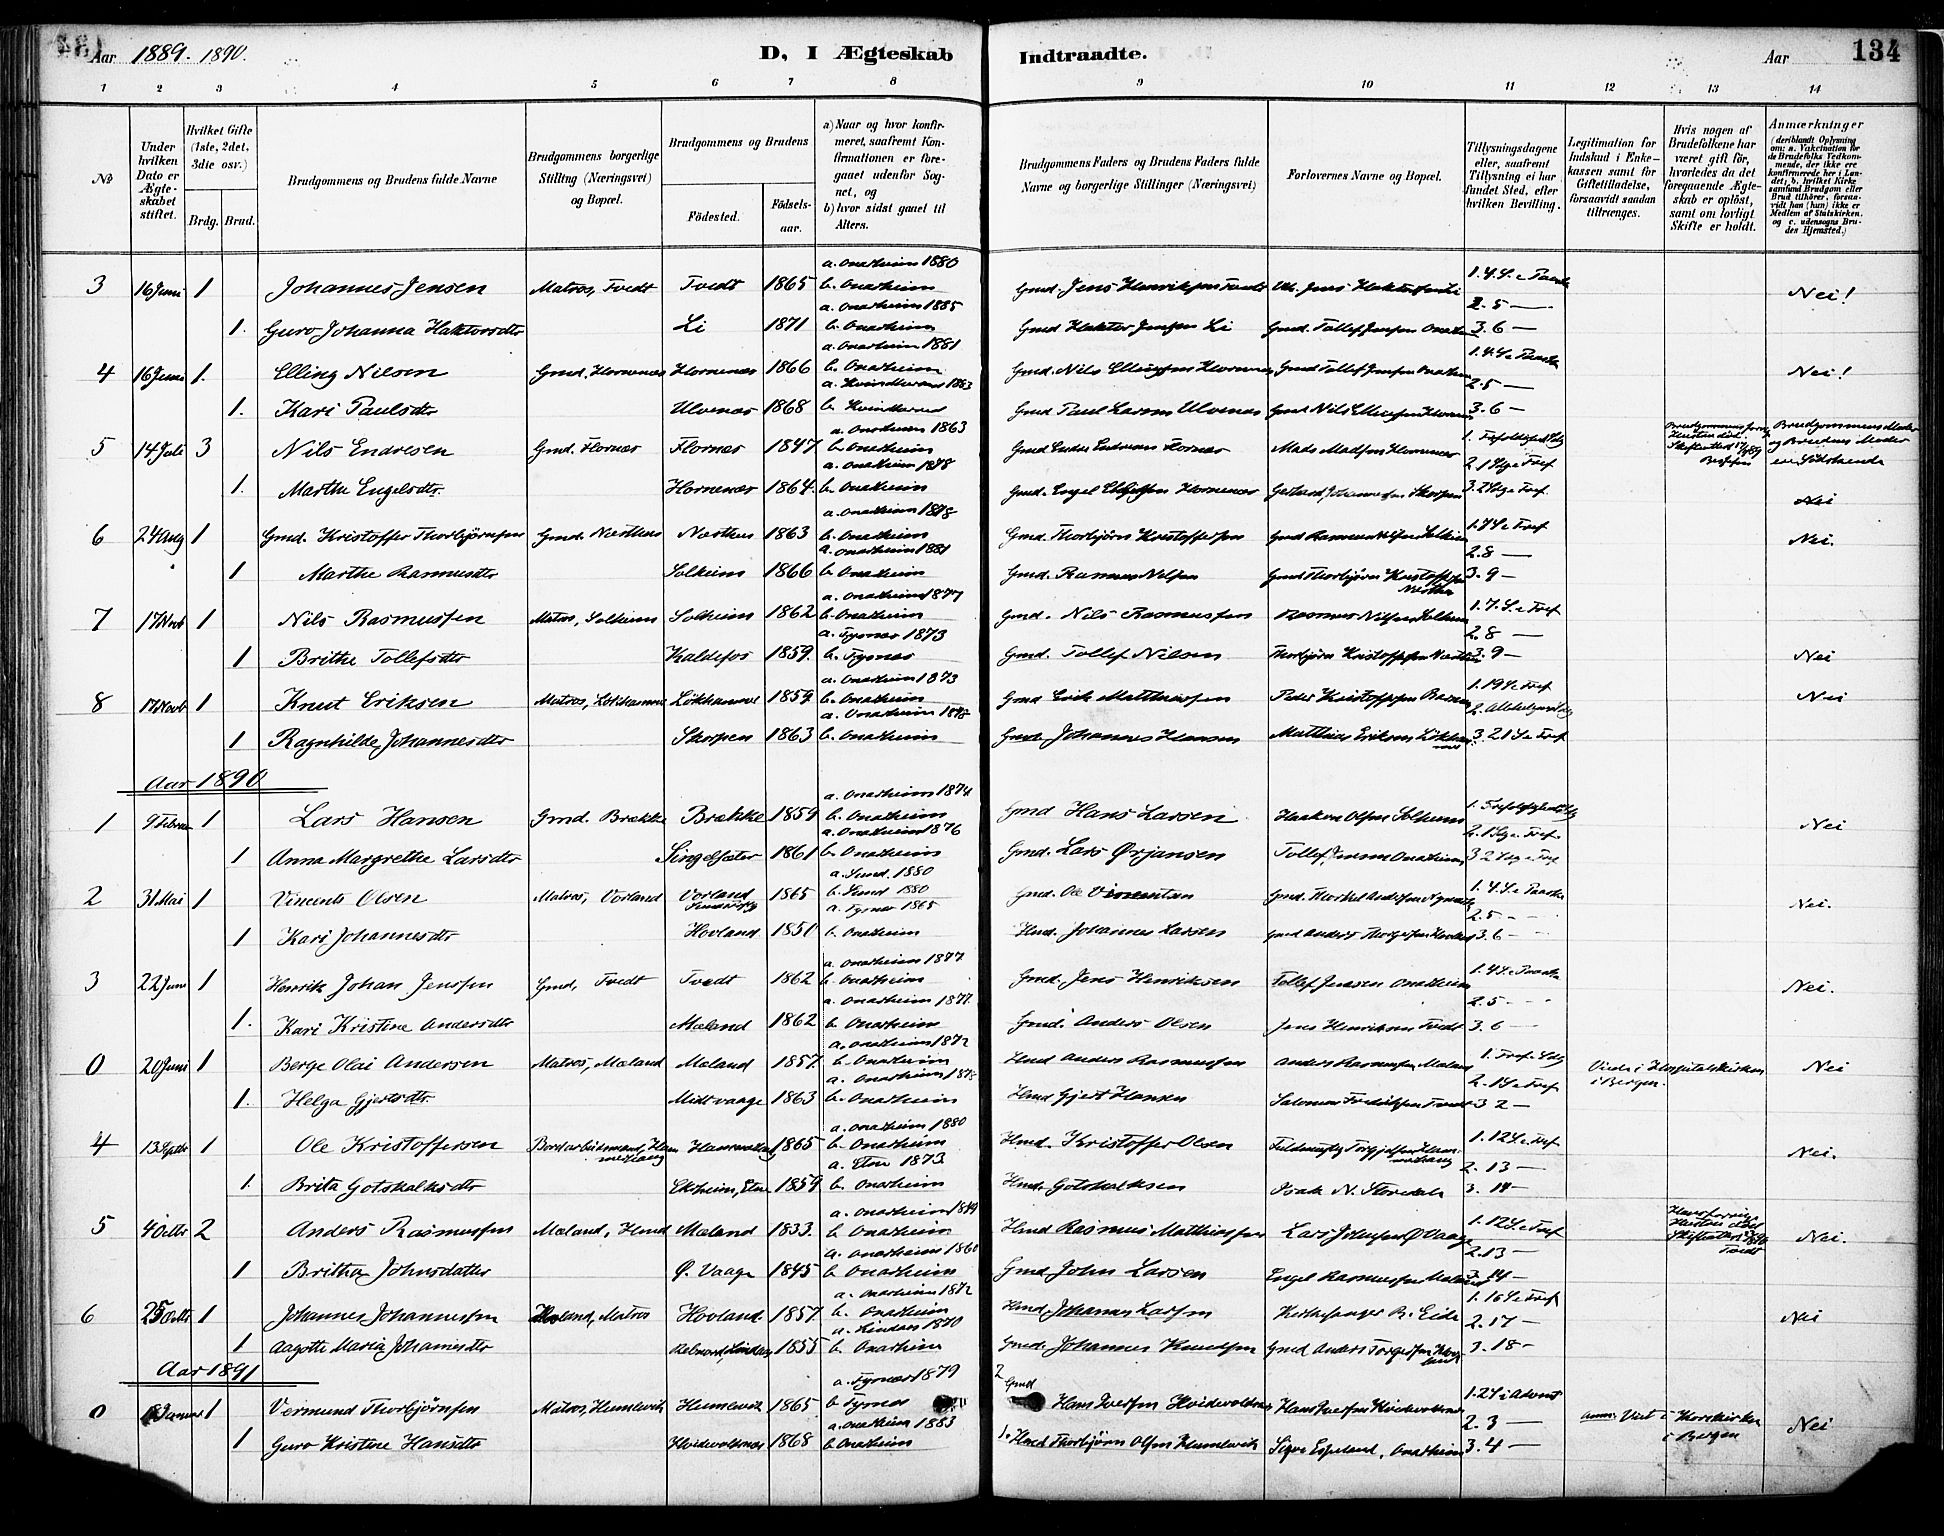 Aar 1889. 1890. D, I Ægteskab Indtraadte. Aar 134
1 2 3 4 5 6 7 8 9 10 11 12 13 14
No
Under hvilken Dato er Ægteskabet stiftet.
Hvilket Gifte (1ste, 2det, 3die osv.)
Brdg. Brud.
Brudgommens og Brudens fulde Navne
Brudgommens borgerlige Stilling (Næringsvei) og Bopæl.
Brudgommens og Brudens
Fødested. Fødselsaar.
a) Naar og hvor konfirmeret, saafremt Konfirmationen er foregaaet udenfor Sognet, og
b) hvor sidst gaaet til Alters.
Brudgommens Faders og Brudens Faders fulde Navne og borgerlige Stillinger (Næringsvei)
Forlovernes Navne og Bopæl.
Tillysningsdagene eller, saafremt Tillysning ei har fundet Sted, efter hvilken Bevilling.
Legitimation for Indskud i Enkekassen samt for Giftetilladelse, forsaavidt saadan tiltrænges.
Hvis nogen af Brudefolkene har været gift før, hvorledes da det foregaaende Ægteskab er opløst, samt om lovligt Skifte er holdt.
Anmærkninger (deriblandt Oplysning om: a. Vakcination for de Brudefolks Vedkommende, der ikke ere konfirmerede her i Landet; b. hvilket Kirkesamfund Brudgom eller Brud tilhører, forsaavidt han (hun) ikke er Medlem af Statskirken, og c. udensogns Brudes Hjemsted.)
a. Onarheim 1880
3 16 Juni 1 Johannes Jensen Matros, Tvedt Tvedt 1865 b. Onarheim Gmd. Jens Henriksen Tvedt 1. 4. S. e. Paaske Nei!
a. Onarheim 1885 2. 5 —
1. Guro Johanna Haktorsdtr Li 1871 b. Onarheim Gmd Haktor Jensen Li Gmd. Tollef Jensen Onarheim 3. 6 —
a. Onarheim 1881
4 16 Juni 1. Elling Nilsen Gmd. Hornenæs Hornenæs 1866 b. Onarheim Gmd. Nils Ellingsen Hornenæs Gmd Tollef Jensen Onarheim 1. 4. S. e Paaske Nei!
1883 2. 5 —
1. Kari Paulsdtr Ulvenæs 1868 Gmd. Paul Larsen Ulvenæs Gmd Nils Ellingsen Hornenæs 3. 6 —
a. Onarheim 1863
5 14 Juli 3 Nils Endresen Gmd. Flornæs Flornæs 1847 b. Onarheim Gmd Endre Endresen Flornæs Mads Madsen Hornenæs Brudgommens Moder og Brudens Moder ere Sødskende
a. Onarheim 1878
1. Marthe Engelsdtr. Hornenæs 1864. b. Onarheim Gmd. Engel Ellingsen Hornenæs Nei
a. Onarheim 1878
6 24 Aug 1 Gmd. Kristoffer Thorbjørnsen Gmd. Næsthus Næsthus 1863 b. Onarheim Gmd. Thorbjørn Kristoffersen Gmd Rasmus Nilsen Solheim 1. 7 S. e Tref Nei.
a. Onarheim 1881 2. 8 —
1 Marthe Rasmusdtr Solheim 1866 b. Onarheim Gmd. Rasmus Nilsen Gmd Thorbjørn Kristoffersen Næsthus 3. 9 —
a. Onarheim 1877
7 17 Novb 1 Nils Rasmussen Matros, Solheim Solheim 1862 b. Onarheim Gmd. Nils Rasmussen Rasmus Nilsen Solheim 1. 7. S. e Tref
a. Tysnæs 1873 2. 8 —
1 Brithe Tollefsdtr Kaldefos 1859. b. Tysnæs Gmd. Tollef Nilsen Thorbjørn Kristoffersen Næsthus 3. 9 — Nei
a. Onarheim 1873
8 17 Novb 1 Knut Eriksen Matros, Løkhamme Løkhamme 1859 b. Onarheim Gmd Erik Matthiassen Peder Kristoffersen 1. 19 S e Tref Nei
a. Onarheim 1878
1 Ragnhilde Johannesdtr Skorpen 1863 b. Onarheim Gmd. Johannes Hansen Matthias Eriksen Løkhamme 3. 21 S e Tref
Aar 1890
a. Onarheim 1874
1 9 Februar 1 Lars Hansen Gmd. Brække Brække 1859 b. Onarheim Gmd Hans Larsen Haakon Olsen Solheim Nei
a. Onarheim 1876
1 Anna Margrethe Larsdtr Singelsæter 1861 b. Onarheim Gmd. Lars Ørjansen Tollef Jensen Onarheim
a. Sund. 1880
2 31 Mai 1 Vincents Olsen Matros, Vorland Vorland 1865 b. Sund 1880 Gmd. Ole Vincentsen 1. 4. S. e Paaske Nei.
a. Tysnæs 1865 2. 5 -
1 Kari Johannesdtr Hovland 1851 b. Onarheim Hmd. Johannes Larsen Gmd Anders Thorgersen Hovland 3. 6 -
a. Onarheim 1877
3 22 Juni 1 Henrik Johan Jenssen Gmd, Tvedt Tvedt 1862 b. Onarheim Gmd. Jens Henriksen Tollef Jensen Onarheim 1. 4 S. e Paaske Nei.
a. Onarheim 1877. 2. 5 -
1. Kari Kristine Andersdtr Mæland 1862 b. Onarheim Gmd. Anders Olsen Jens Henriksen Tvedt 3. 6 -
a. Onarheim 1872
0 20 Juni 1 Berge Olai Andersen Matros, Mæland Mæland 1857. b. Onarheim Hmd Anders Rasmussen Anders Rasmussen Mæland Viede i Hospitalskirken i Bergen. Nei
a. Onarheim 1878
1. Helga Gjertsdtr. Midtvaage 1863 b. Onarheim Hmd Gjert Hansen 3 2 —
a. Onarheim 1880
4 13 Septbr 1 Ole Kristoffersen 1865 b. Onarheim Hmd. Kristoffer Olsen 1. 12 S. e Tref Nei.
a. Etne 1873 2. 13 —
1. Brita Gotskalksdtr Ekheim, Etne 1859 b. Onarheim Hmd. Gotskalksen Isak N. Storedale 3. 14 —
a. Onarheim 1849
5 4 Octbr 2 Anders Rasmussen Mæland, Hmd Mæland 1833. b. Onarheim Hmd Rasmus Matthiassen Lars Johnsen Ø Vaage 1. 12 S. e Tref Nei.
a. Onarheim 1860 2. 13 —
1 Britha Johnsdatter Ø. Vaage 1845 b. Onarheim Gmd John Larsen Engel Rasmussen Mæland 3. 14 —
a. Onarheim 1872
6 25 Octbr 1 Johannes Johannessen Hovland, Matros Hovland 1857. b. Onarheim Hmd Johannes Larsen Kirkesanger B. Eide 1. 16 S. e Tref Nei
a. Lindaas 1870 2. 17 —
1 Aagothe Maria Johannesdtr 1855 b. Onarheim Gmd. Johannes Knudsen Gmd Anders Torgersen Hovland 3. 18 —
Aar 1891
a. Tysnæs 1879
0 Januar 1 Vermund Thorbjørnsen Matros, Humlevik Humlevik 1865 b. Tysnæs 2 Gmd Hans Iversen Hvidevoldsnæs Hans Iversen Hvidevoldsnæs 1. 2 S i Advent
a. Onarheim 1883 2. 3 — i Korskirken i Bergen Nei
1 Guro Kristine Hansdtr Hvidevoldsnæs 1868 b. Onarheim 1. Hmd Thorbjørn Olsen Humlevik Sigve Espeland, Onarheim 3. 4 —